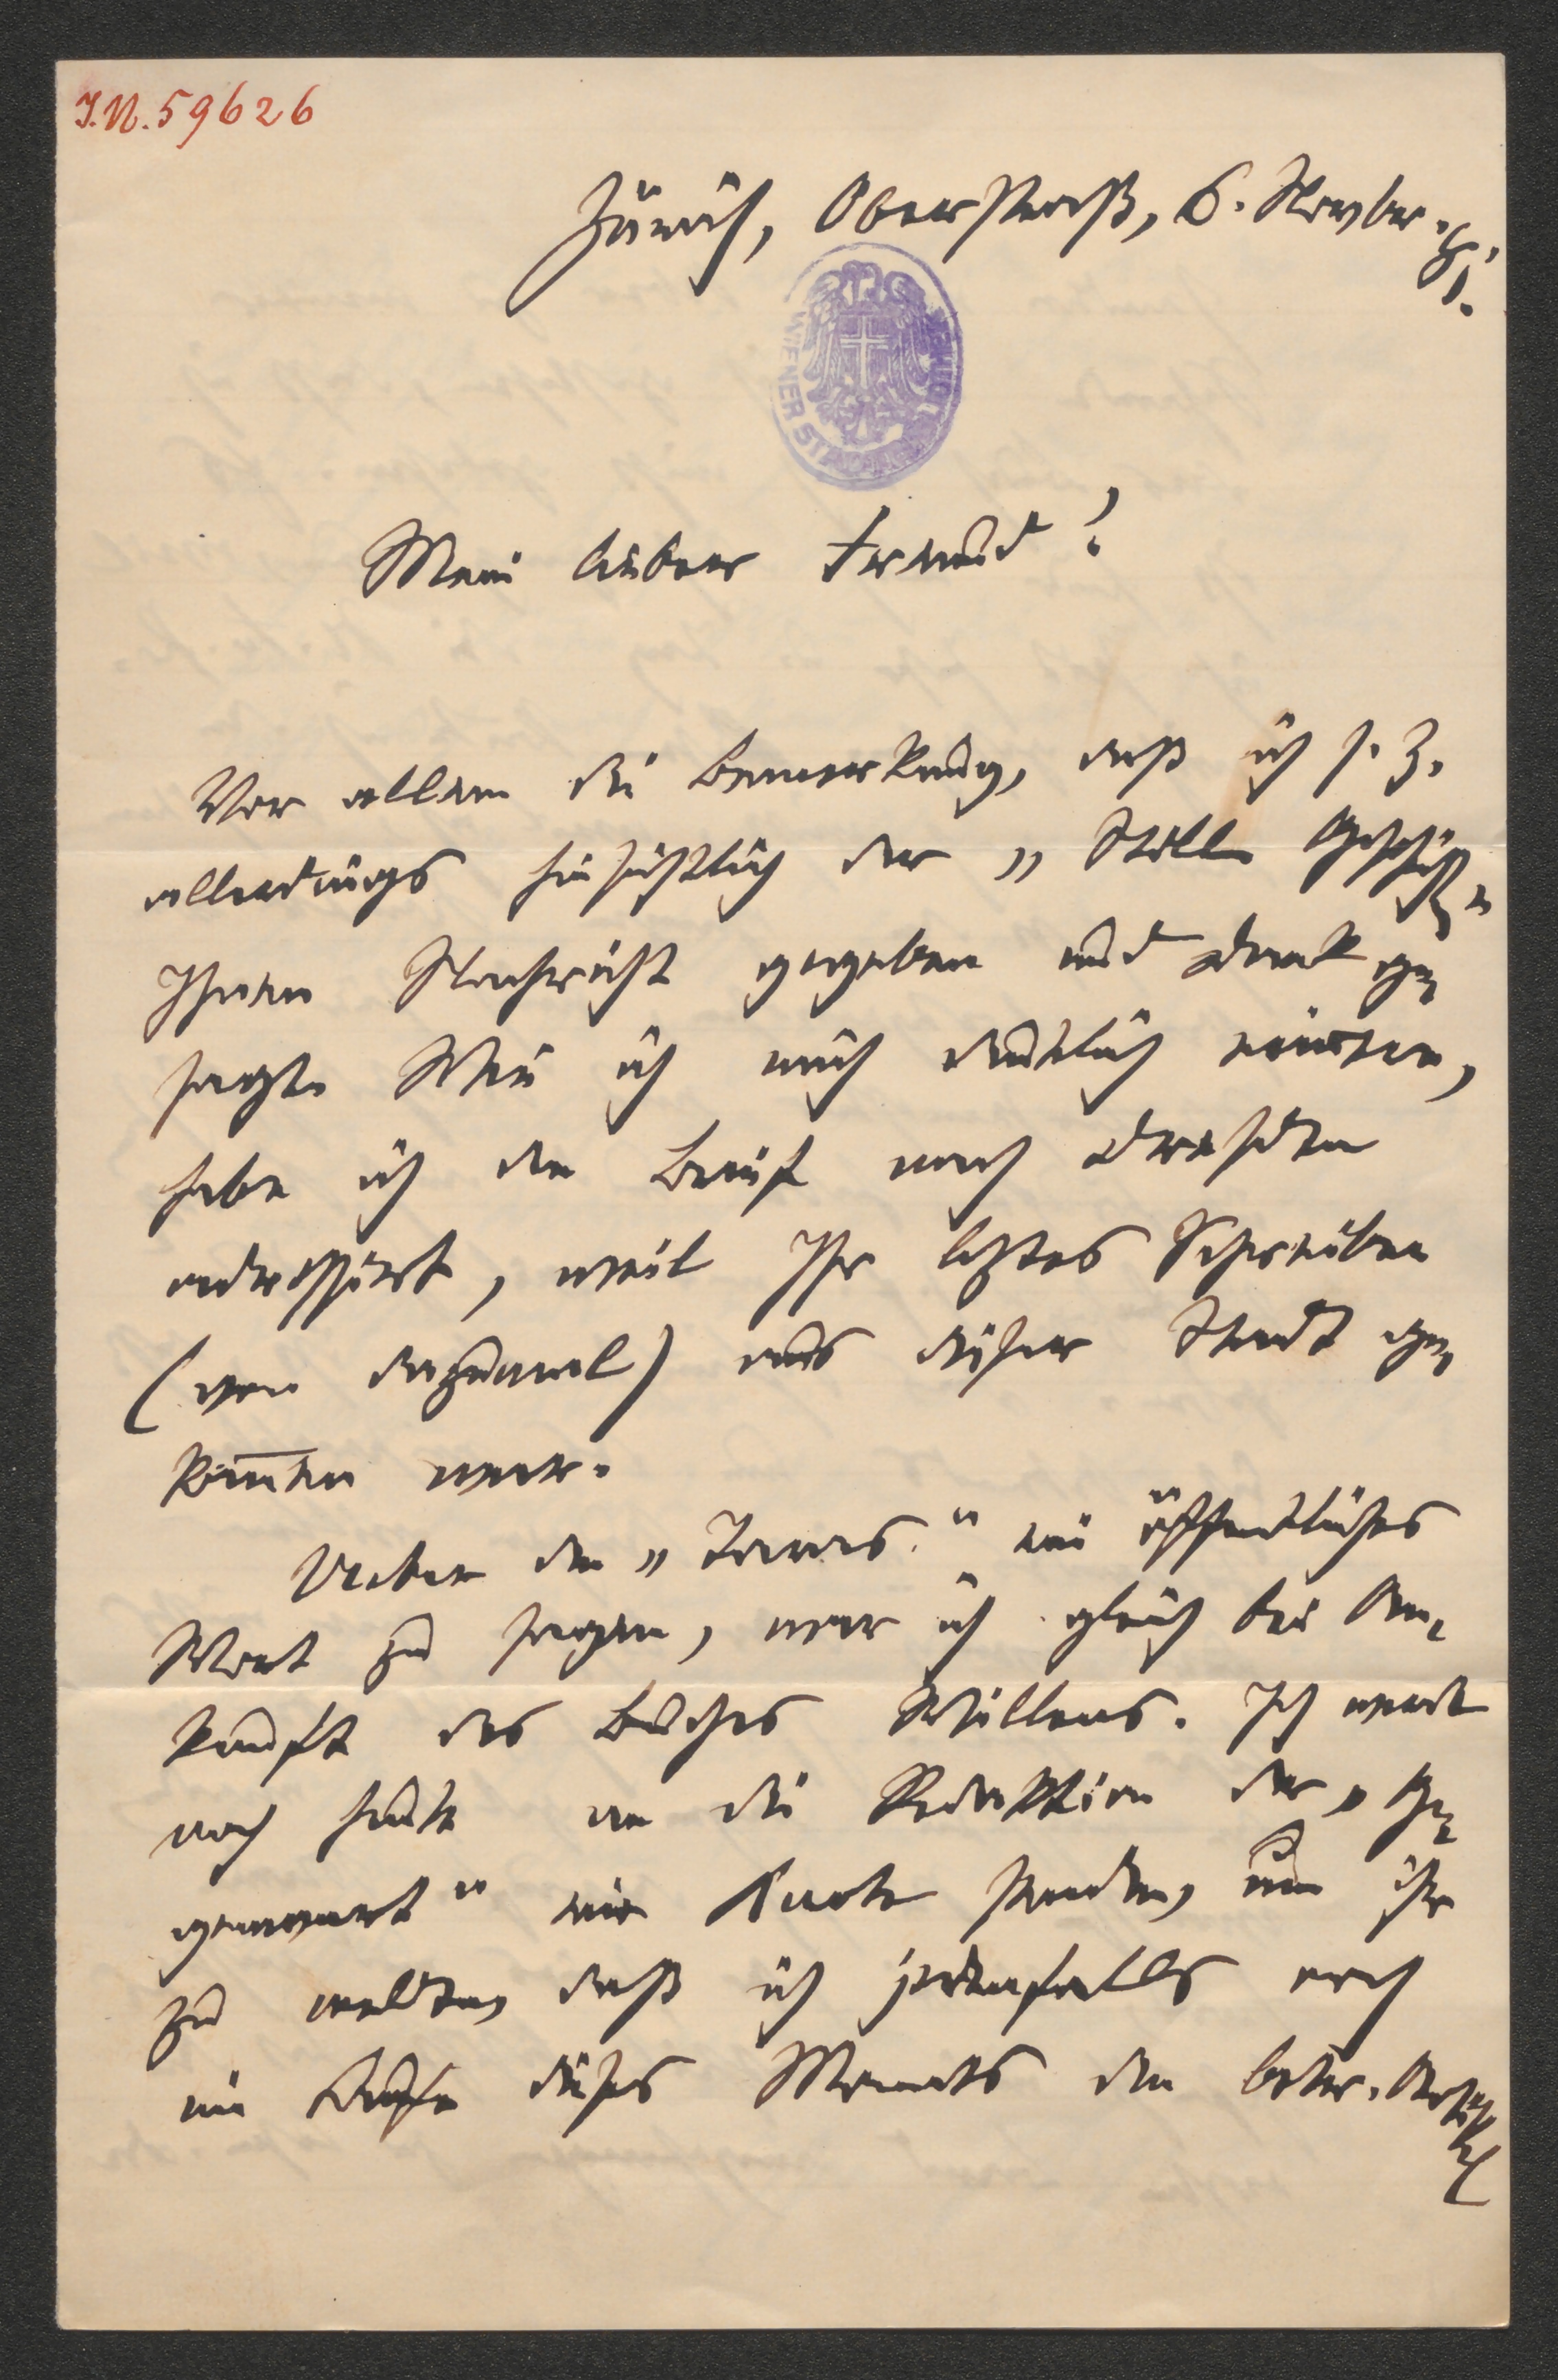 I.N. 59626
Zürich, Oberstraß, 6. November 81.
WIENER STADT
Mein lieber Freund!
Vor allem die Bemerkung, daß ich s. Z.
allerdings hinsichtlich der „Stillen Geschichten"
Ihnen Nachricht gegeben und Dank ge-
sagt. Wie ich mich deutlich erinnere,
habe ich den Brief nach Dresden
adressirt, weil Ihr letztes Schreiben
(von dazumal) aus dieser Stadt ge-
kom̅en war.
Ueber den ein öffentliches
Wort zu sagen, war ich gleich bei An-
kunft des Buches Willens. Ich werde
noch heute an die Redaktion der „Ge-
genwart" eine Karte senden, um ihr
zu melden, daß ich jedenfalls noch
im Laufe dieses Monats den betr. Artikel